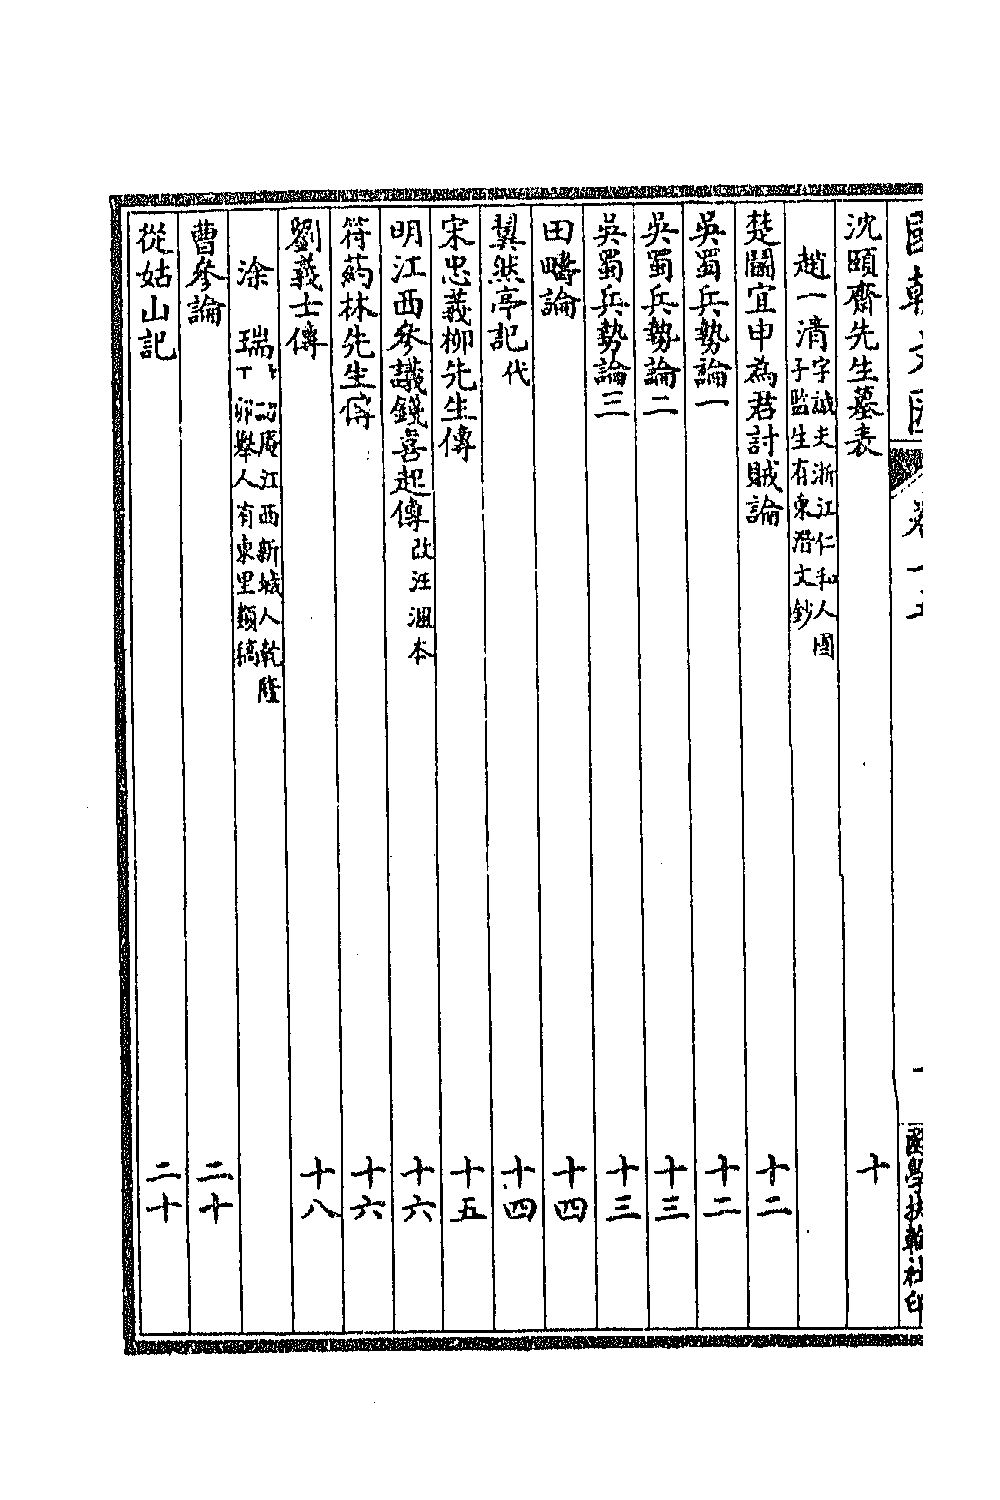 國朝文匯
卷十五
一
國學扶輪社印
沈頤齋先生墓表 十
趙一清字誠夫浙江仁和人國
子監生有東潛文鈔
楚鬭宜申為君討賊論 十二
吳蜀兵勢論一 十二
吳蜀兵勢論二 十三
吳蜀兵勢論三 十三
田疇論 十四
翼然亭記代 十四
宋忠義柳先生傳 十五
明江西參議錢喜起傳改汪洄本 十六
符葯林先生傳 十六
劉義士傳 十八
涂 瑞 庵江西新城人乾隆
丁卯舉人有東里類稿
曹參論 二十
從姑山記 二十